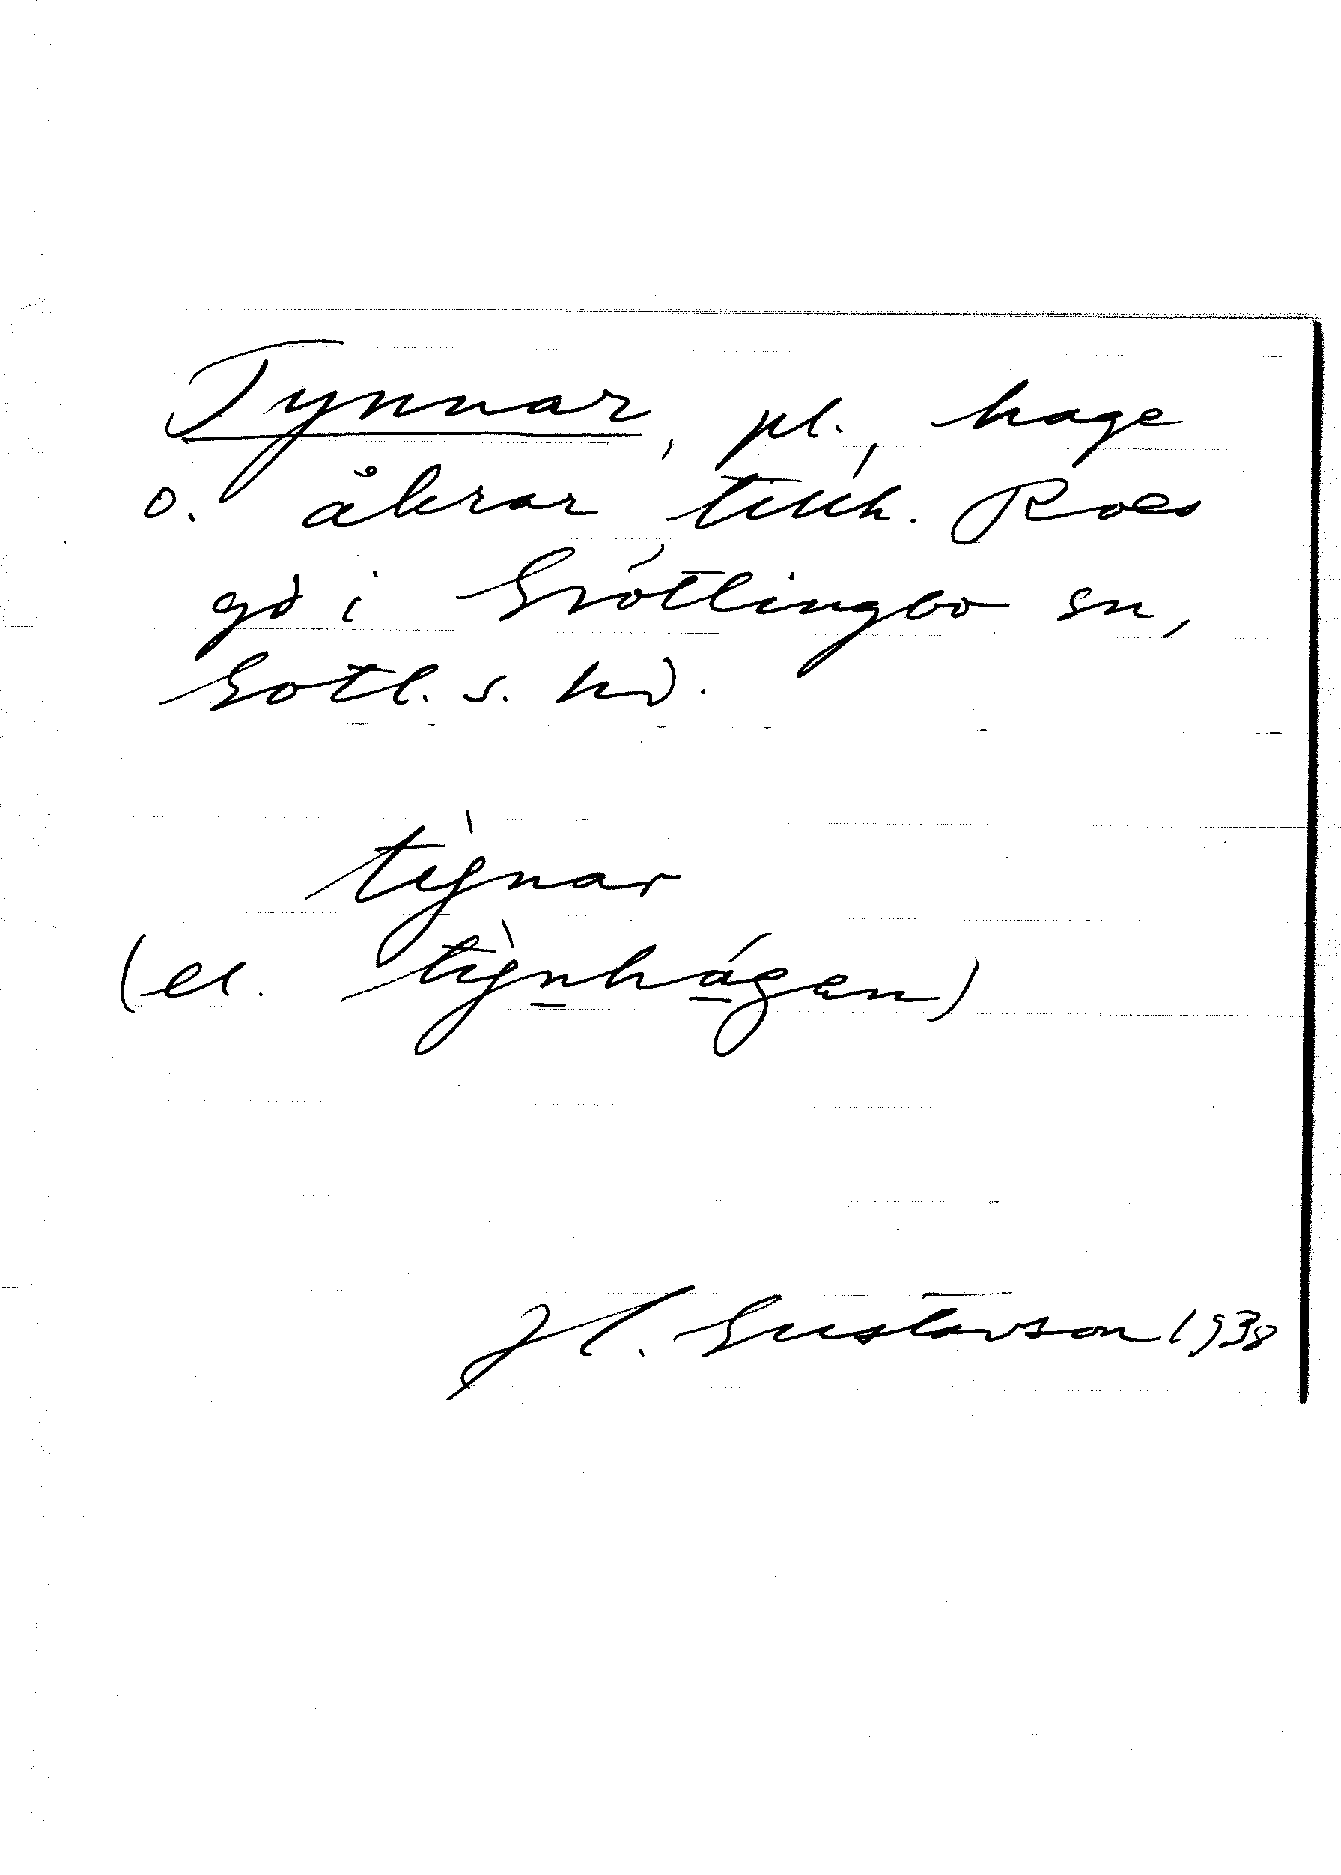 Tynnar, pl., hage
o. åkrar tillh. Roes
gd i Grötlingbo sn,
Gotl. s. hd.
tỳnar
(el. tỳnhágen)
H. Gustavson 1938